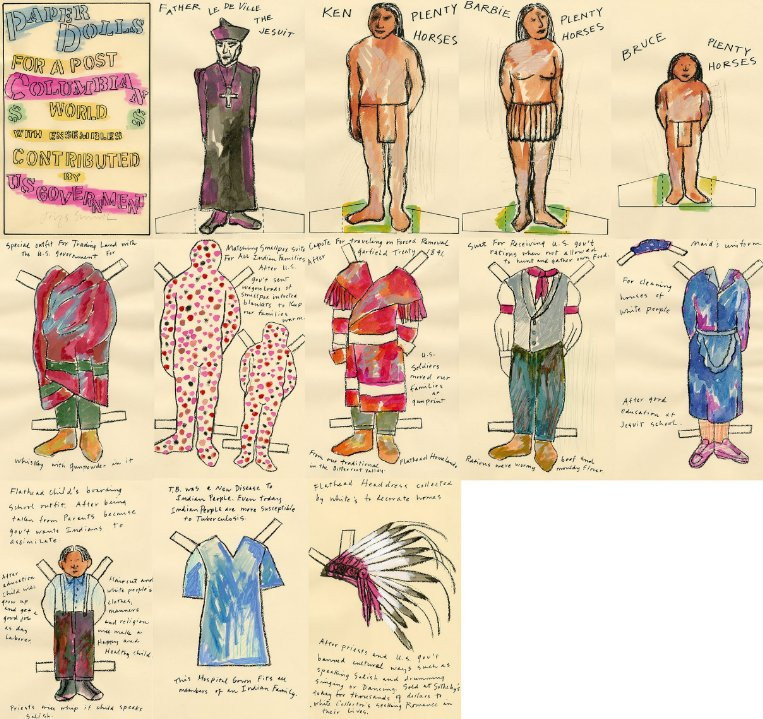 PAPER
DOLLS
FOR A POST
COLUMBIAN
$ WORLD $
WITH ENSEMBLES
CONTRIBUTED
BY
US GOVERNMENT
FATHER LE DE VILLE
THE
JESUIT
KEN PLENTY
HORSES
BARBIE PLENTY
HORSES
BRUCE PLENTY
HORSES
Special outfit for Trading Land with
the U.S. Government for
Whiskey with Gunpowder in it
Matching Smallpox Suits
For All Indian Families
After U.S.
Gov't sent
wagon loads of
smallpox infected
blankets to Keep
our families
warm.
Capote for traveling on Forced Removal
After Garfield Treaty 1891
U.S.
Soldiers
moved our
families
at
gunpoint
From our traditional Flathead Homelands
in the Bitterroot Valley
Suit for Receiving U.S. gov't
rations when not allowed
to hunt and gather own food.
Rations were wormy beef and
moulday flour
Maid's uniform
For cleaning
houses of
white people
After good
education at
Jesuit school.
Flathead child's boarding
school outfit. After being
taken from Parents because
gov't wants Indians to
assimilate
After
education
child was
grow up
and get a
good job
as day
laborer
Haircut and
white people's
clothes,
manners
and religion
will make a
Happy and
Healthy child
Priests will whip if child speaks
Salish.
T.B. was a New Disease to
Indian People. Even Today
Indian People are more susceptible
to Tuberculosis.
This Hospital Gown Fits all
members of an Indian Family.
Flathead Headdress collected
by white's to decorate homes
After priests and U.S. gov't
banned cultural ways such as
speaking Salish and drumming
singing or Dancing. Sold at Sotheby's
today for thousands of dollars to
white Collectors seeking Romance in
their Lives.